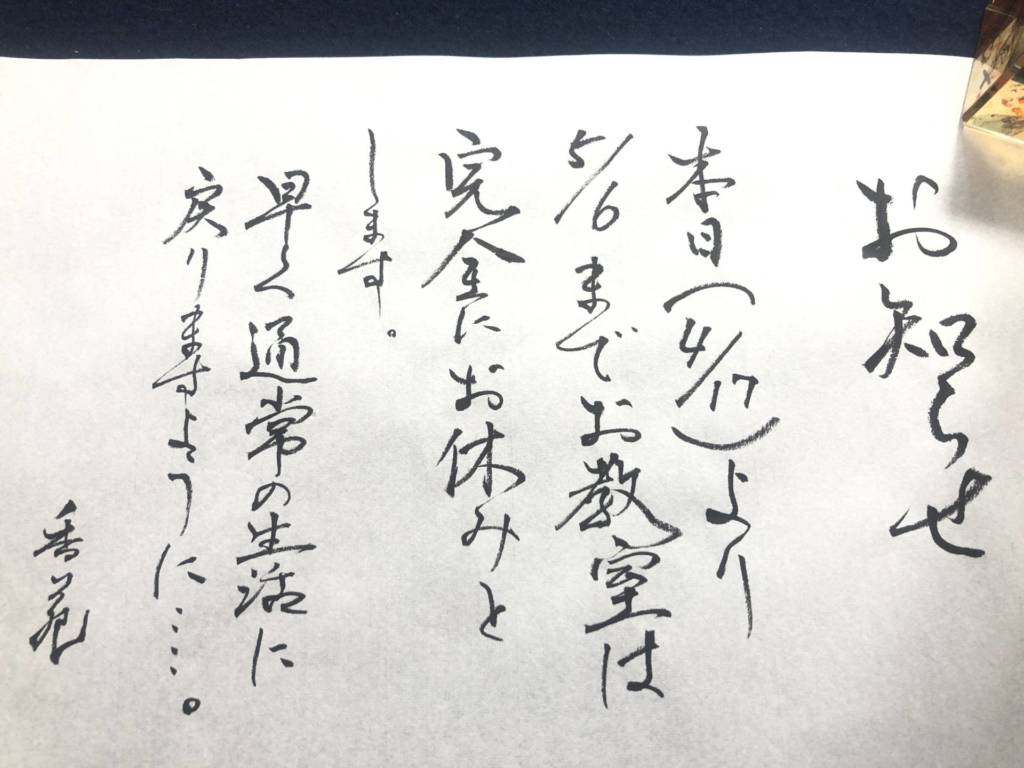 お知らせ
本日(4/17)より
5/6までお教室は
完全にお休みと
します。
早く通常の生活に
戻りますように……。
香苑